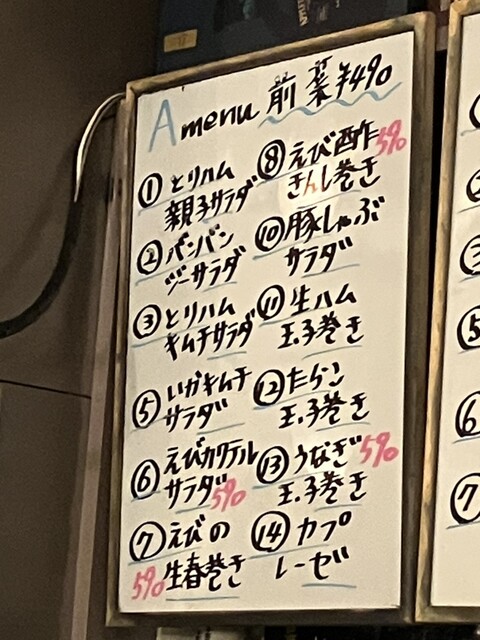 A menu 前菜 ¥490
① とりハム
親子サラダ
② バンバン
ジーサラダ
③ とりハム
キムチサラダ
⑤ いかキムチ
サラダ
⑥ えびカクテル
サラダ 590
⑦ えびの
590 生春巻き
⑧ えび酢 590
きんし巻き
⑩ 豚しゃぶ
サラダ
⑪ 生ハム
玉子巻き
⑫ たらこ
玉子巻き
⑬ うなぎ 590
玉子巻き
⑭ カプ
レーゼ
③
⑤
⑥
⑦